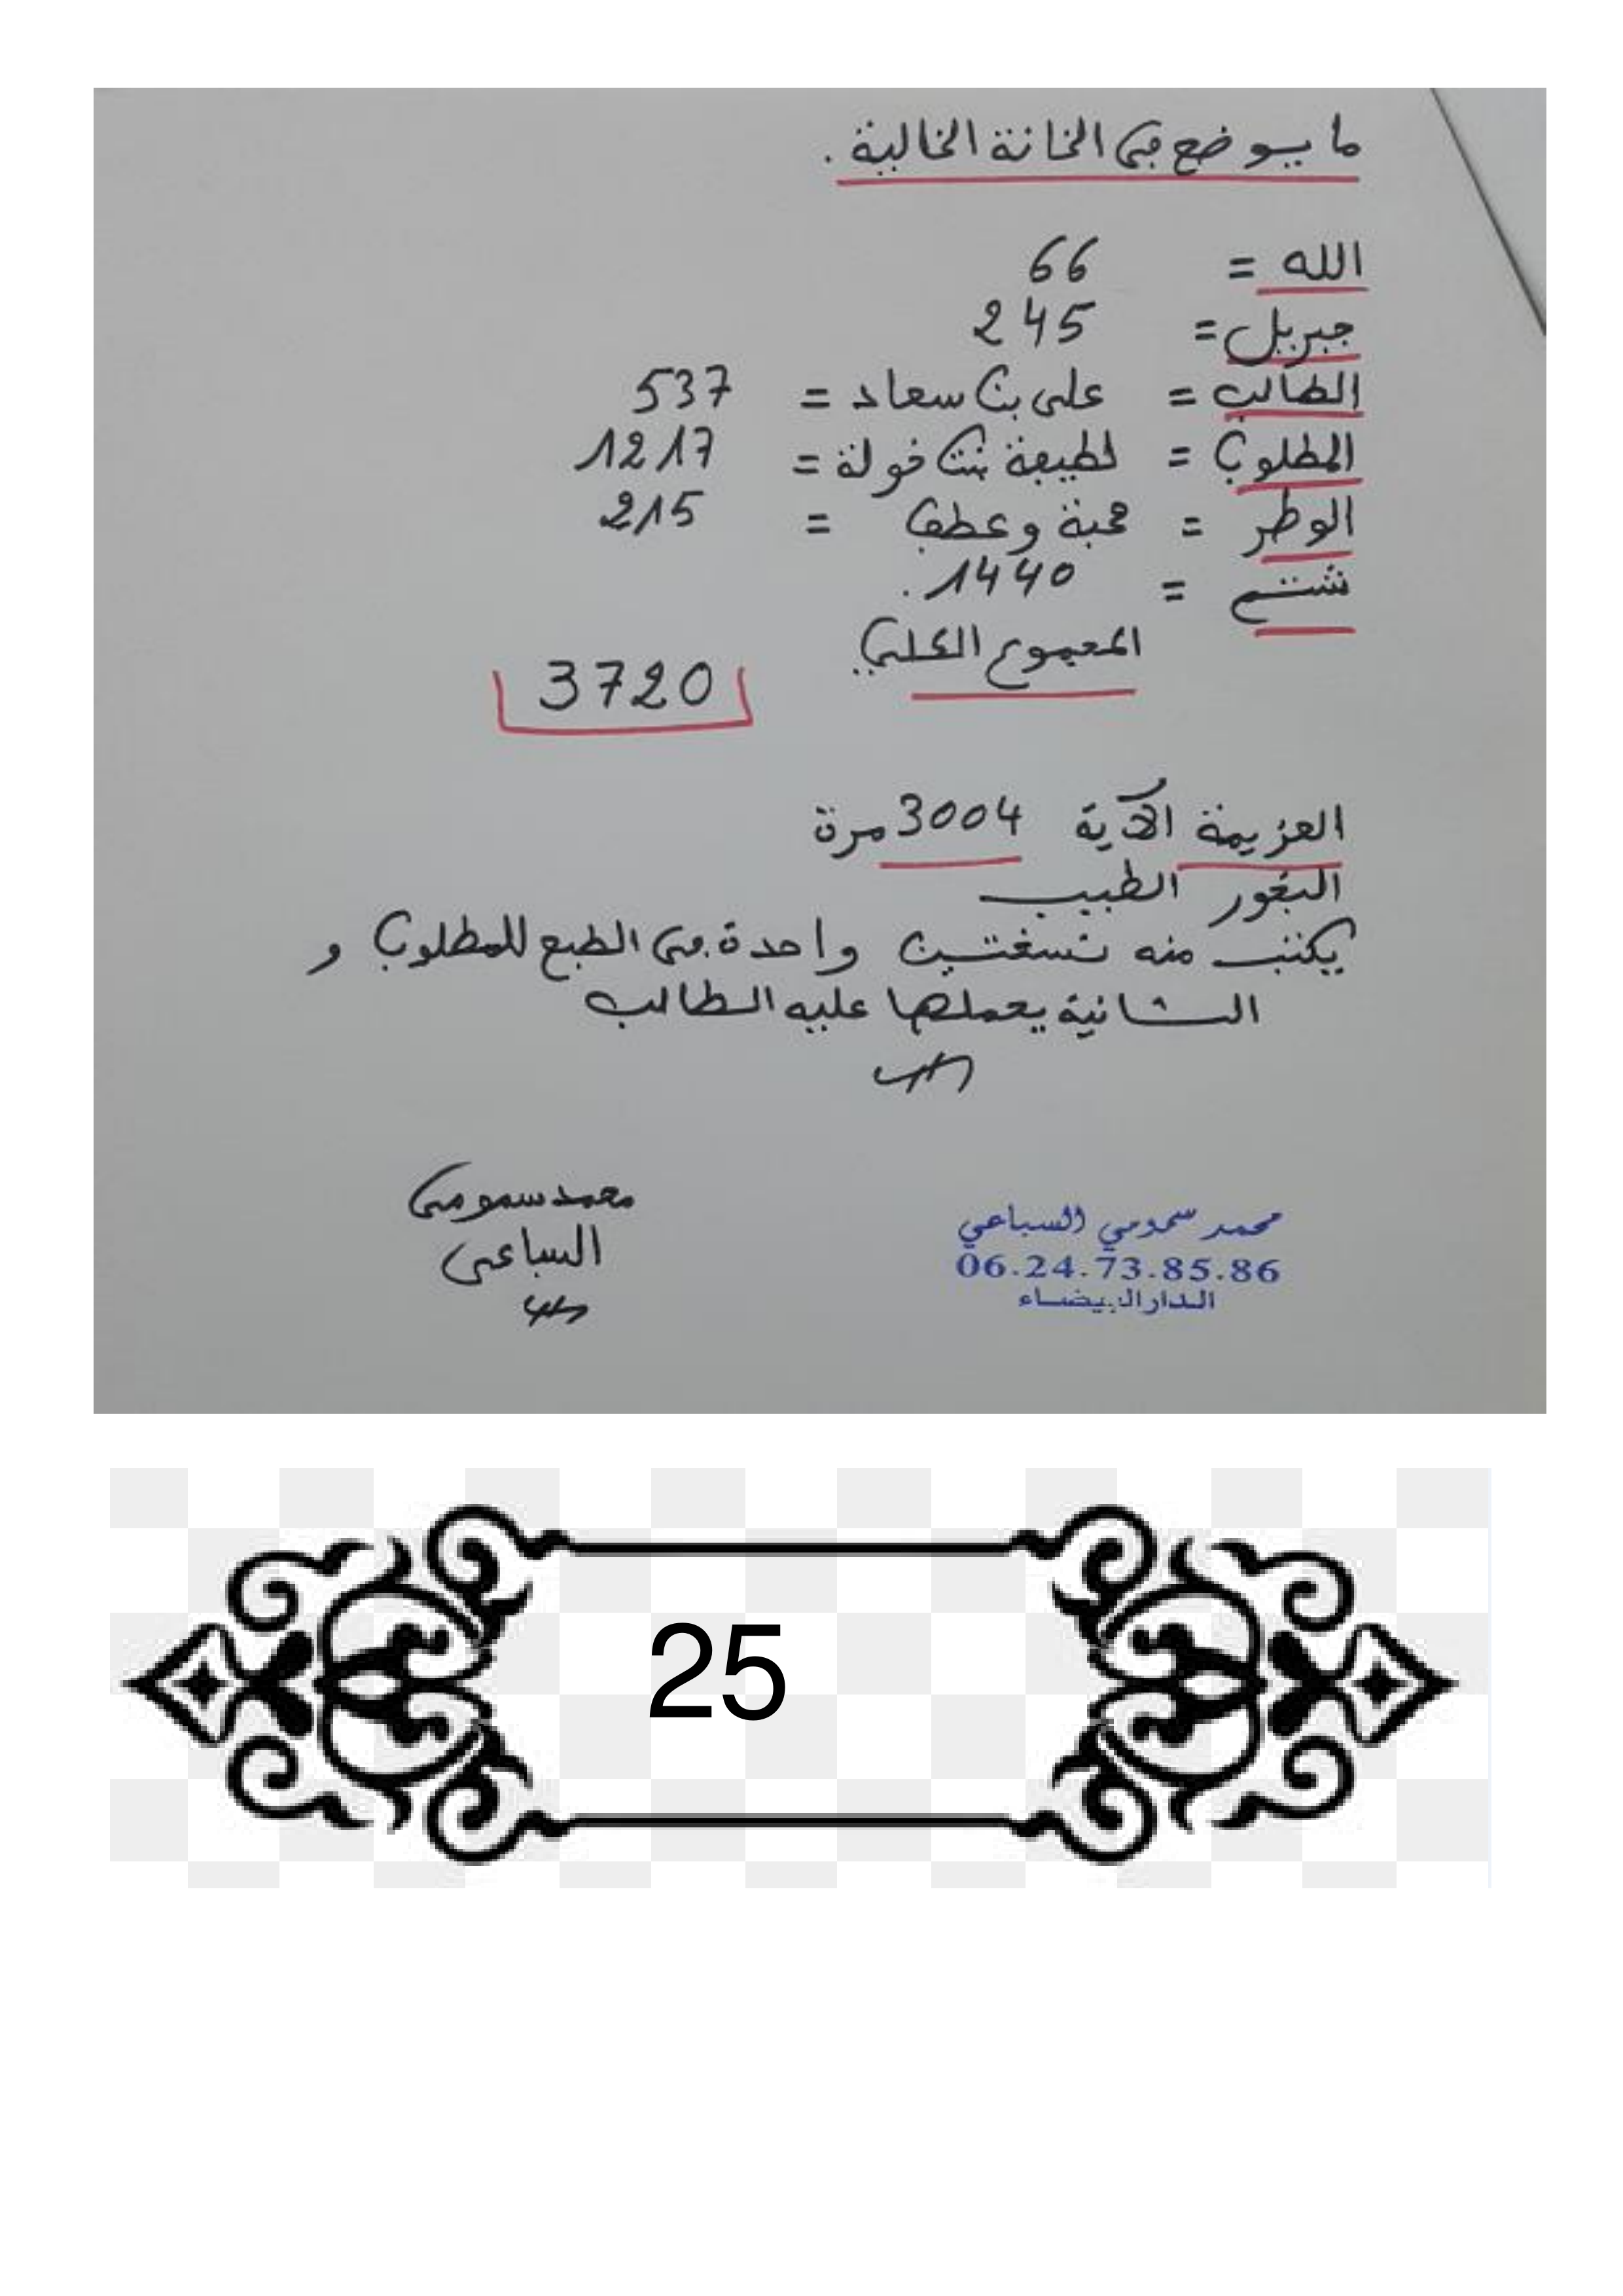 ما يوضع في الخانة الخالية .
الله = 66
جبريل = 245
الطالب = علي بن سعاد = 537
المطلوب = لطيفة بنت فولة = 1217
الوطر = محبة وعطف = 215
شتم = 1440 .
المجموع الكلي
3720
العزيمة الآية 3004 مرة
البخور الطيب
يكتب منه نسختين واحدة في الطبع للمطلوب و
الثانية يحملها عليه الطالب
محمد سمومي
السباعي
محمد سمومي السباعي
06.24.73.85.86
الدار البيضاء
25